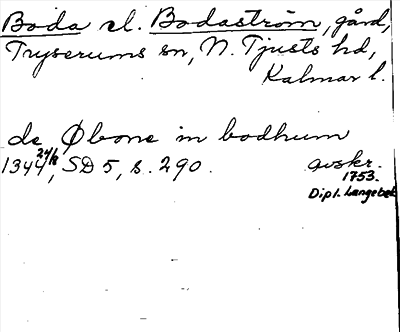 Boda el. Bodaström, gård,
Tryserums sn, N. Tjusts hd,
Kalmar l.
de Øbone in bodhum
1344 24/8, SD 5, s. 290. avskr.
1753.
Dipl. Langebek